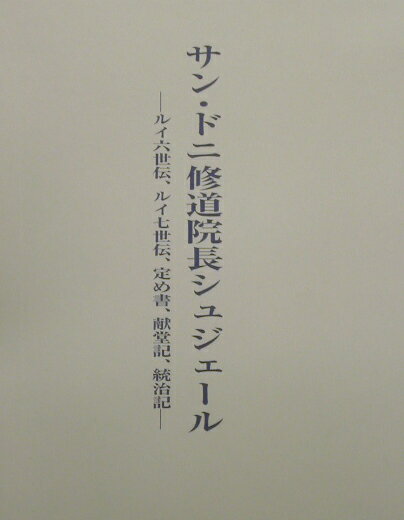 サン・ドニ修道院長シュジェール
―ルイ六世伝、ルイ七世伝、定め書、献堂記、統治記―